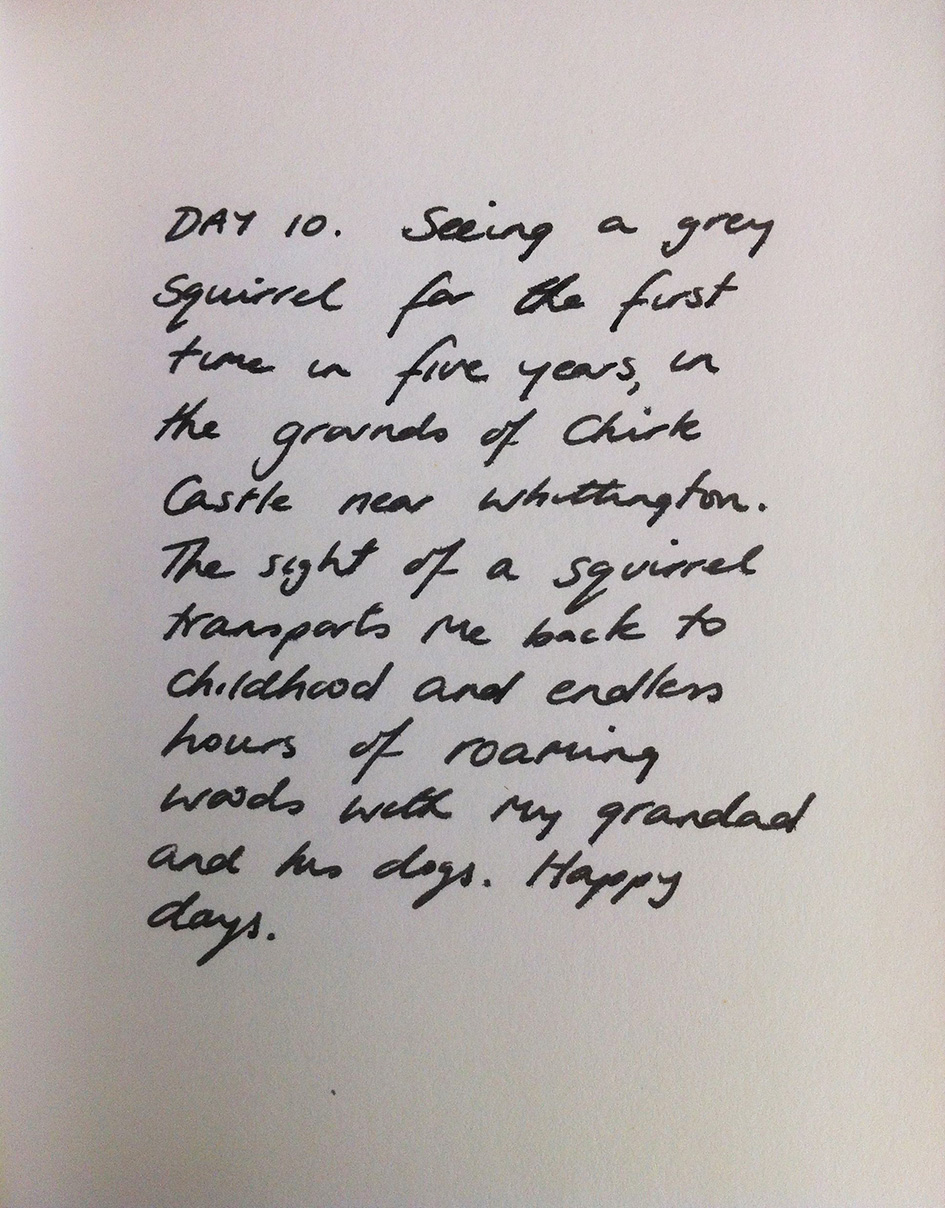 DAY 10. Seeing a grey
squirrel for the first
time in five years, in
the grounds of Chirk
Castle near Whittington.
The sight of a squirrel
transports me back to
childhood and endless
hours of roaming
woods with my grandad
and his dogs. Happy
days.